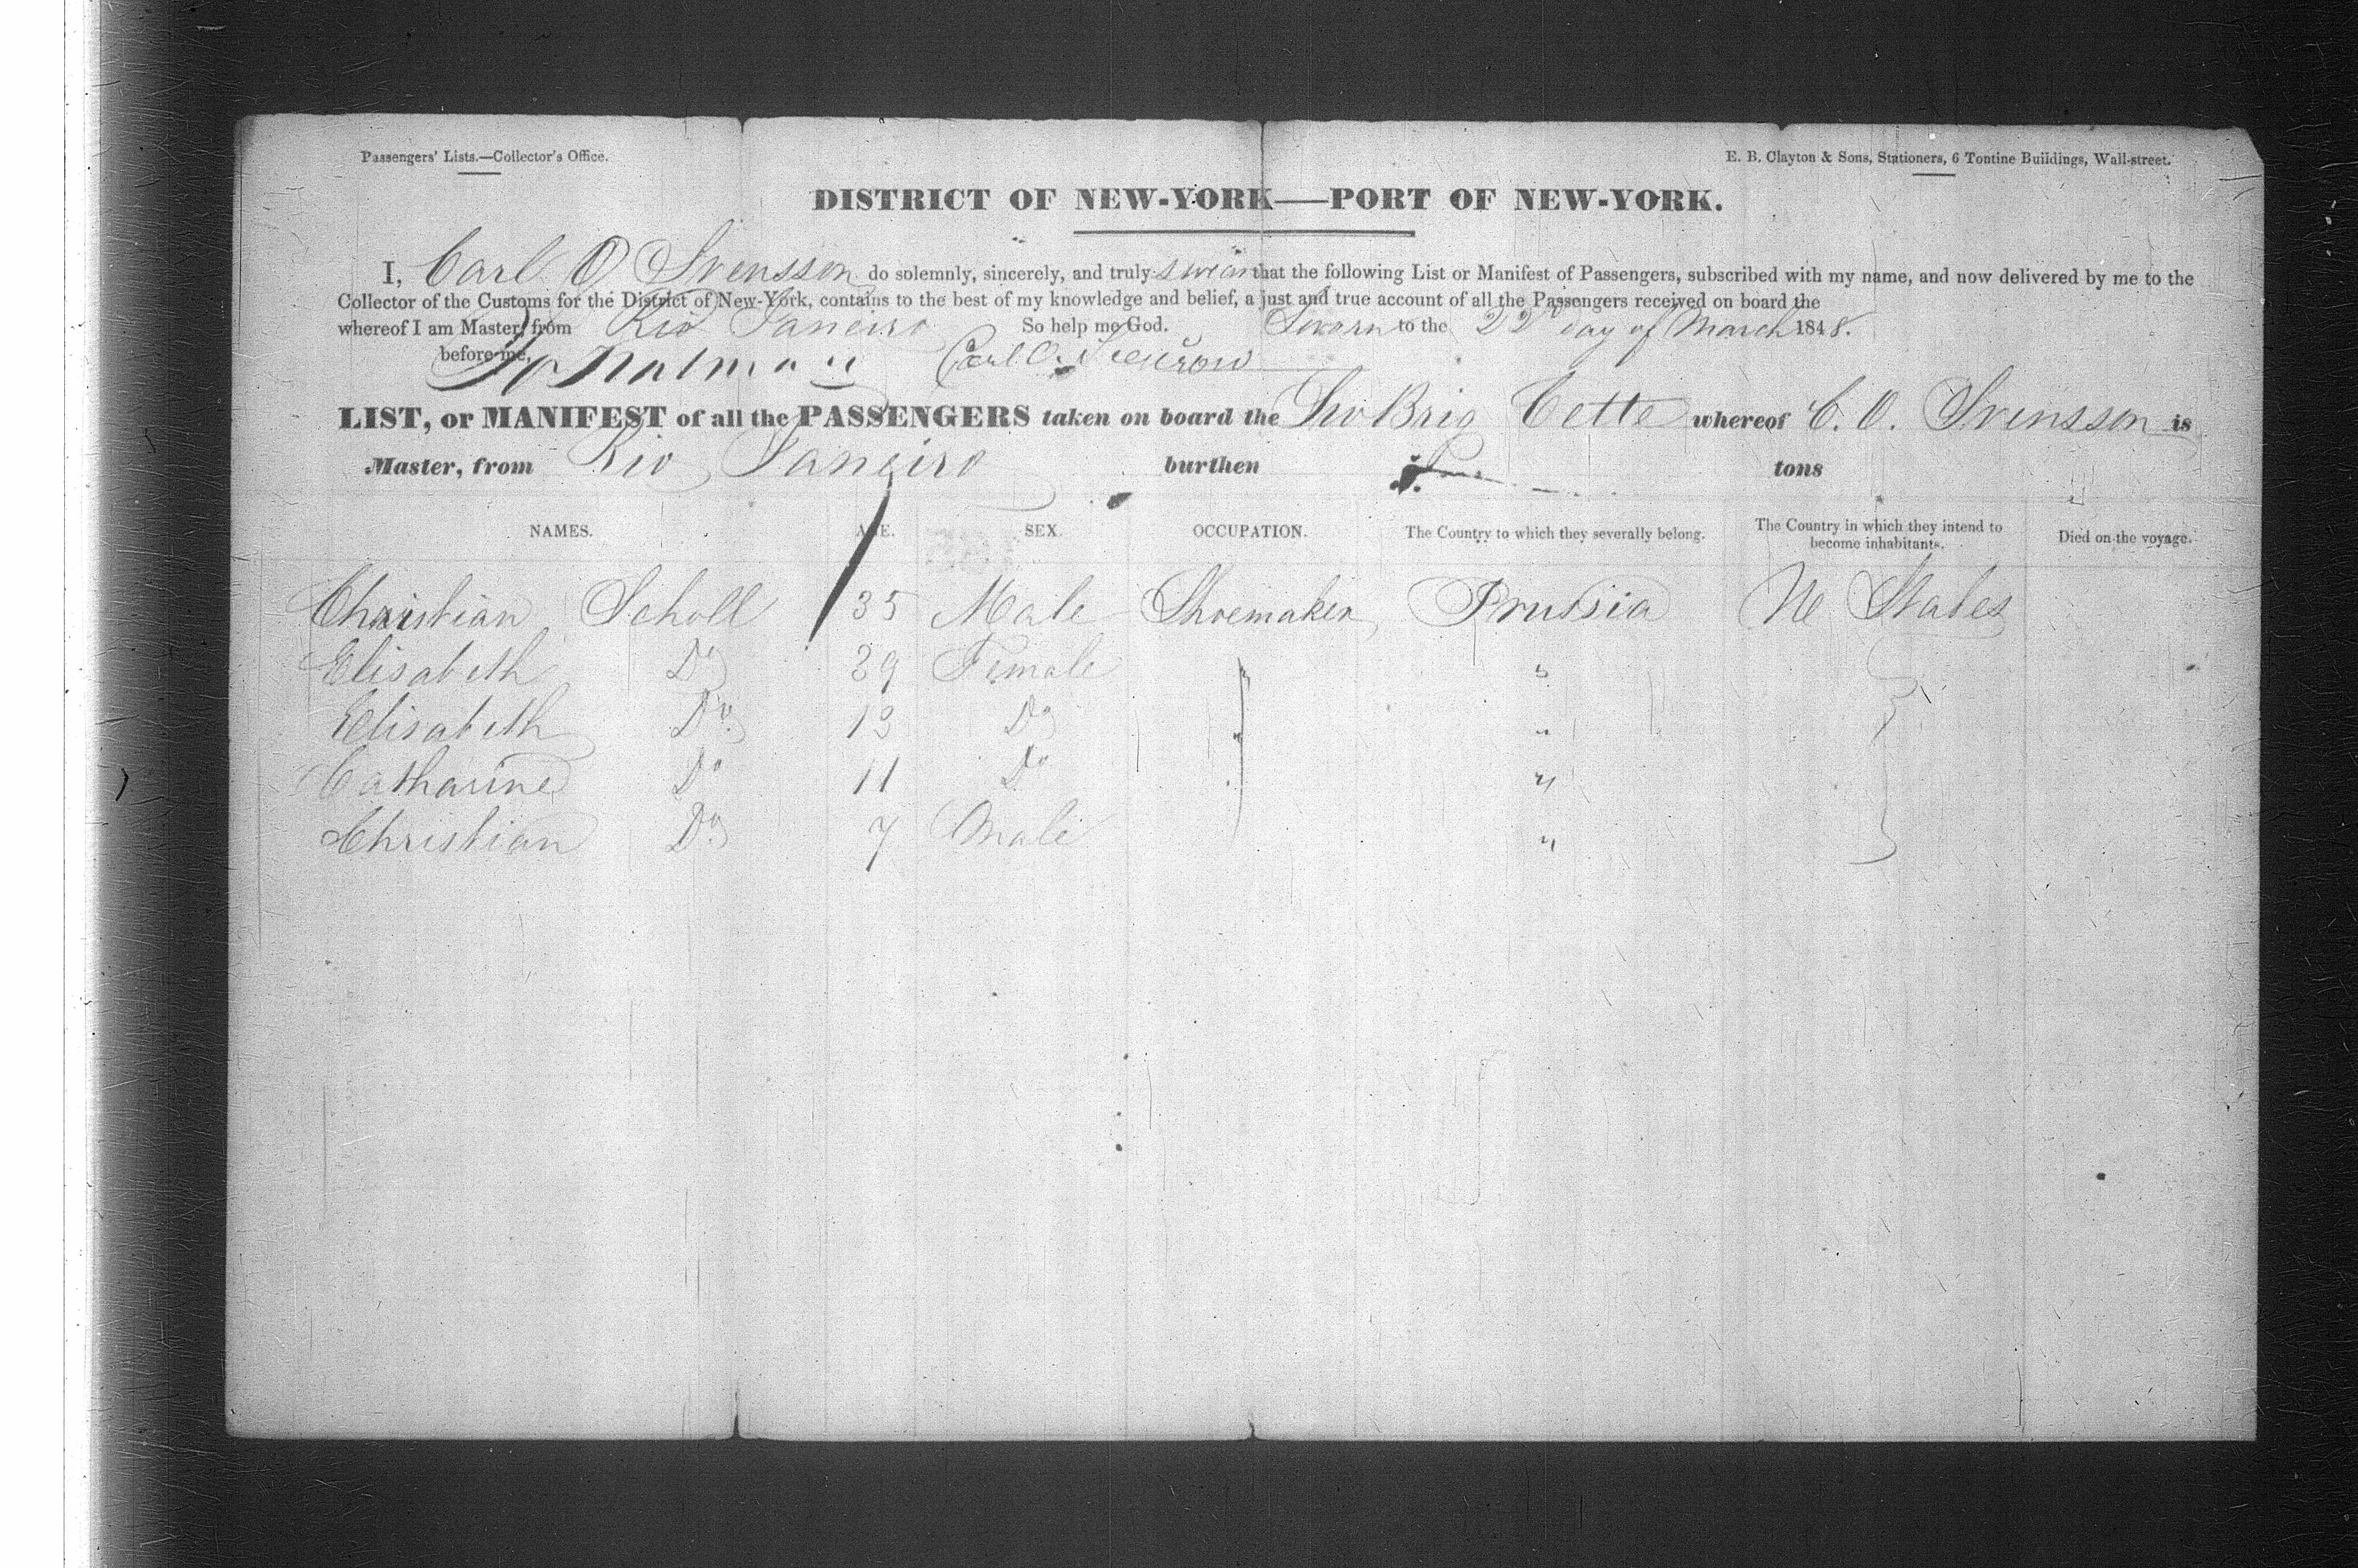 Passengers' Lists.—Collector's Office.
E. B. Clayton & Sons, Stationers, 6 Tontine Buildings, Wall-street.
DISTRICT OF NEW-YORK—PORT OF NEW-YORK.
I, Carl O Svensson do solemnly, sincerely, and truly swear that the following List or Manifest of Passengers, subscribed with my name, and now delivered by me to the
Collector of the Customs for the District of New-York, contains to the best of my knowledge and belief, a just and true account of all the Passengers received on board the
whereof I am Master, from Rio Janeiro So help me God. Sworn to the 22d day of March 1848.
before me, Carl O. Svensson
LIST, or MANIFEST of all the PASSENGERS taken on board the Sw Brig Cette whereof C. O. Svensson is
Master, from Rio Janeiro burthen tons
NAMES. AGE. SEX. OCCUPATION. The Country to which they severally belong. The Country in which they intend to become inhabitants. Died on the voyage.
Christian Scholl 35 Male Shoemaker Prussia U States
Elisabeth Do 39 Female "
Elisabeth Do 13 Do "
Catharine Do 11 Do "
Christian Do 7 Male "